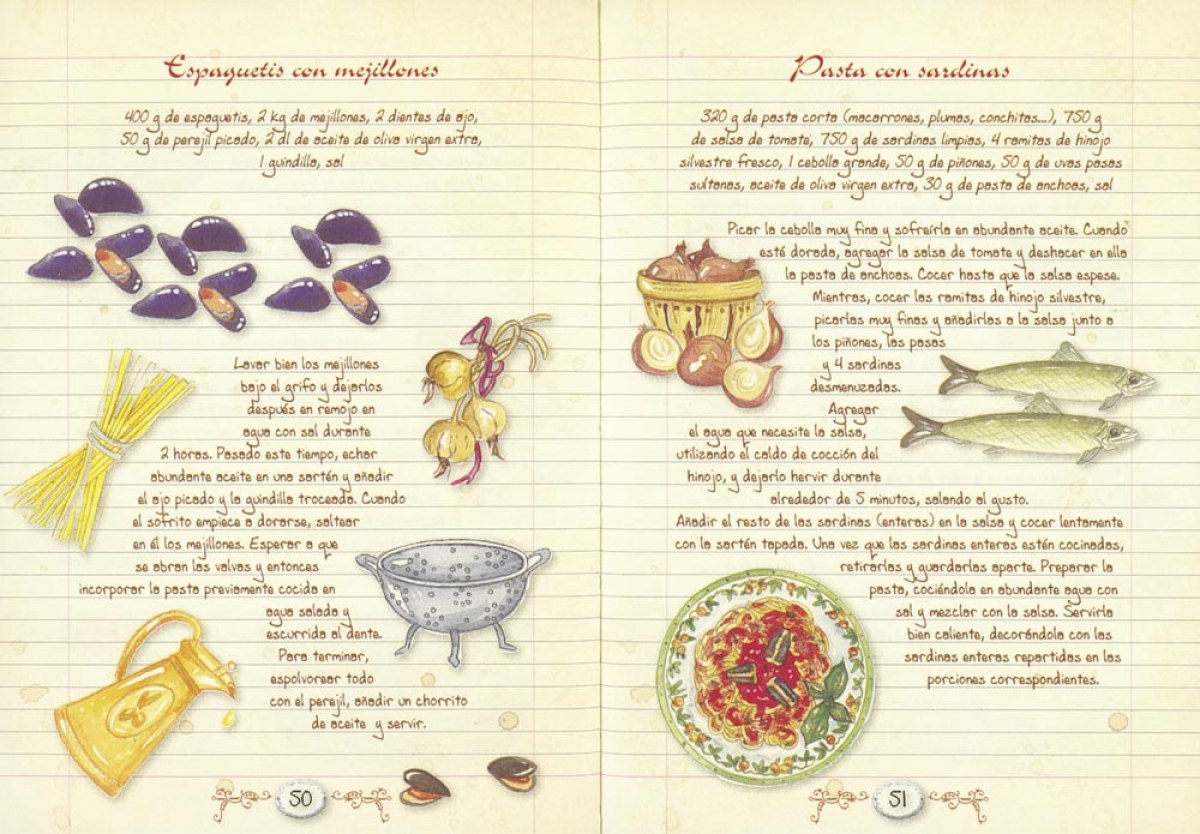 Espaguetis con mejillones
400 g de espaguetis, 2 kg de mejillones, 2 dientes de ajo,
50 g de perejil picado, 2 dl de aceite de oliva virgen extra,
1 guindilla, sal
Lavar bien los mejillones
bajo el grifo y dejarlos
después en remojo en
agua con sal durante
2 horas. Pasado este tiempo, echar
abundante aceite en una sartén y añadir
el ajo picado y la guindilla troceada. Cuando
el sofrito empiece a dorarse, saltear
en él los mejillones. Esperar a que
se abran las valvas y entonces
incorporar la pasta previamente cocida en
agua salada y
escurrida al dente.
Para terminar,
espolvorear todo
con el perejil, añadir un chorrito
de aceite y servir.
50
Pasta con sardinas
320 g de pasta corta (macarrones, plumas, conchitas...), 750 g
de salsa de tomate, 750 g de sardinas limpias, 4 ramitas de hinojo
silvestre fresco, 1 cebolla grande, 50 g de piñones, 50 g de uvas pasas
sultanas, aceite de oliva virgen extra, 30 g de pasta de anchoas, sal
Picar la cebolla muy fina y sofreírla en abundante aceite. Cuando
esté dorada, agregar la salsa de tomate y deshacer en ella
la pasta de anchoas. Cocer hasta que la salsa espese.
Mientras, cocer las ramitas de hinojo silvestre,
picarlas muy finas y añadirlas a la salsa junto a
los piñones, las pasas
y 4 sardinas
desmenuzadas.
Agregar
el agua que necesite la salsa,
utilizando el caldo de cocción del
hinojo, y dejarlo hervir durante
alrededor de 5 minutos, salando al gusto.
Añadir el resto de las sardinas (enteras) en la salsa y cocer lentamente
con la sartén tapada. Una vez que las sardinas enteras estén cocinadas,
retirarlas y guardarlas aparte. Preparar la
pasta, cociéndola en abundante agua con
sal y mezclar con la salsa. Servirla
bien caliente, decorándola con las
sardinas enteras repartidas en las
porciones correspondientes.
51